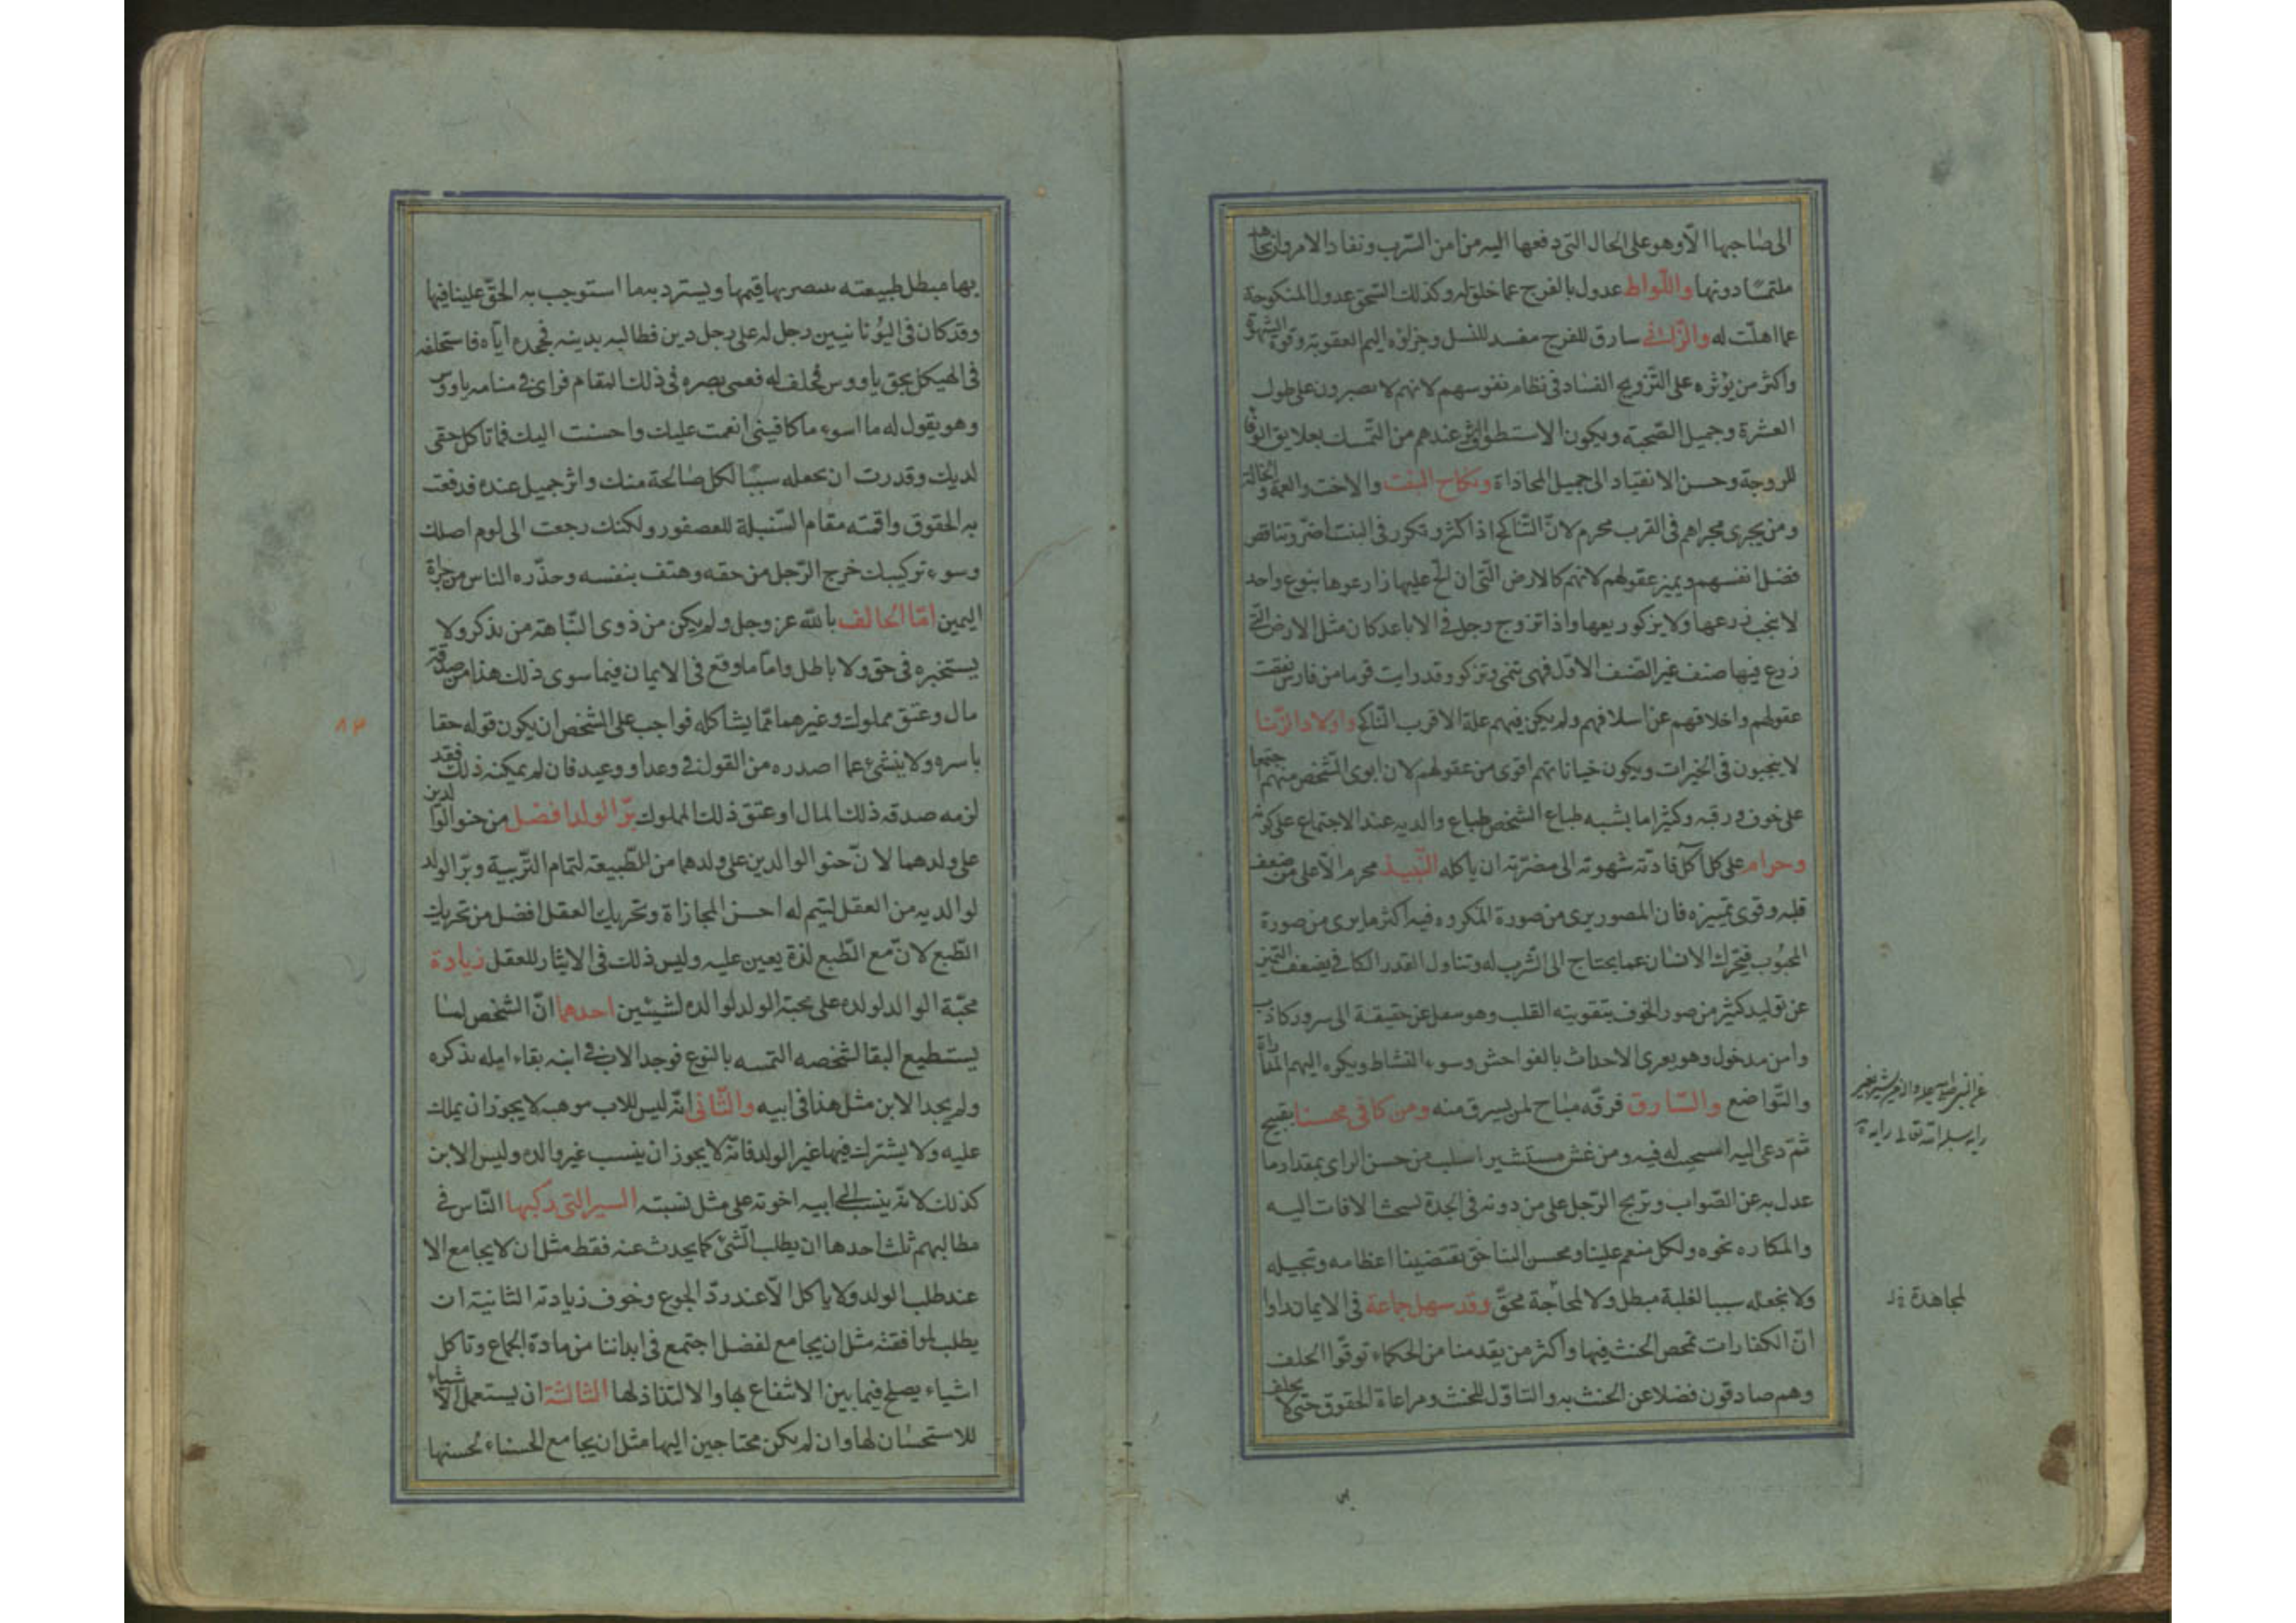 الى صاحبها الّا وهو على الحال التى دفعها اليه من امن السّرب ونفاد الامر وان
ملتمسا دونها واللّواط عدول بالفرج عما خلق له وكذلك السّحق عدول المنكوحة
عما اهلّت له والزّانى سارق للفرج مفسد للنسل وجزاؤه اليم العقوبة وقوة الشهوة
واكثر من يؤثره على التّزويج الفساد فى نظام نفوسهم لانهم لا يصبرون على طول
العشرة وجميل الصّحبة ويكون عندهم من التّمسك بعلايق الوفا
للزوجة وحسن الانقياد الى جميل المحاذاة ونكاح البنت والاخت والعمة والخالة
ومن يجرى مجراهم فى القرب محرم لانّ التّناكح اذا كثر وتكرر فى البنت اضرّ وتناقص
فضل انفسهم ويميز عقولهم لانهم كالارض الّتى ان الحّ عليها زارعوها بنوع واحد
لا ينجب زرعها ولا يزكو ريعها واذا تزوج رجل فى الاباعد كان مثل الارض الّتى
زرع فيها صنف غير الصّنف الاوّل فهى تنمى وتزكو وقد رايت قوما من فارس نقصت
عقولهم واخلاقهم عن اسلافهم ولم يكن فيهم علة الا قرب التّناكح واولاد الزّنا
لا ينجبون فى الخيرات ويكون خياناتهم اقوى من عقولهم لان ابوى الشّخص منهم اجتمعا
على خوف ورقبه وكثيرا ما يشبه طباع الشّخص طباع والديه عند الاجتماع على كونه
وحرام على كل آكل قادته شهوته الى مضرّته ان ياكله النّبيذ محرم الّا على من ضعف
قلبه وقوى تمييزه فان المصور يرى من صورة المكروه فيه اكثر ما يرى من صورة
المحبُوب فيتحرك الانسان عما يحتاج الى الشّرب له وتناول القدر الكافى يضعف التّميز
عن توليد كثير من صور الخوف بتقويته القلب وهو عن حقيقة الى سرور كاذب
وامن مدخول وهو يعرى الاحداث بالفواحش وسوء النشاط ويكره اليهم المداراة
والتّواضع والسّارق فرقه مباح لمن يسرق منه ومن كافى محسنا بقبيح
ثمّ دعى اليه له فيه ومن غش مستشيرا سلب من حسن الراى بمقدار ما
عدل به عن الصّواب الرّجل على من دونه فى الجدة الافات اليه
والمكاره نحوه ولكل منعم علينا ومحسن الينا حق يقتضينا اعظامه وتبجيله
ولا نجعله سببا لغلبة مبطل ولا لمحاجة محقّ وقد سهل جماعة فى الايمان
انّ الكفارات تمحص الحنث فيها واكثر من يقدمنا من الحكماء توقّوا الحلف
وهم صادقون فضلا عن الحنث به والتاوّل للحنث ومراعاة الحقوق حتى لا يحلف
لمجاهدة
بها مبطل طبيعته قيمها ويسترد بهما استوجب به الحقّ علينا فيها
وقد كان فى اليُونانيين رجل له على رجل دين فطالبه بدينه فجحده ايّاه فاستحلفه
فى الهيكل بحق ياووس فحلف له فعمى بصره فى ذلك المقام فراى فى منامه ياووس
وهو يقول له ما اسوء ما كافيتنى انعمت عليك واحسنت اليك فما تاكل حقى
لديك وقدرت ان تجعله سببًا لكل صالحة منك واثر جميل عنده فدفعت
به الحقوق واقمته مقام السّنبلة للعصفور ولكنك رجعت الى لوم اصلك
وسوء تركيبك خرج الرّجل من حقه وهتف بنفسه وحذّره الناس من جراة
اليمين امّا الحالف بالله عز وجل ولم يكن من ذوى النّباهة من يذكر ولا
يستخبره فى حق ولا باطل وامّا ما وقع فى الايمان فيما سوى ذلك هذا من صدقة
مال وعتق مملوك وغيرهما ممّا يشاكله فواجب على الشخص ان يكون قوله حقا
باسره ولا ينثنى عما اصدره من القول فى وعد او وعيد فان لم يمكنه ذلك فقد
لزمه صدقه ذلك المال او عتق ذلك المملوك برّ الولد افضل من حنو الوالدين
على ولدهما لانّ حنو الوالدين على ولدهما من الطّبيعة لتمام التّربية وبرّ الولد
لوالديه من العقل ليتم له احسن المجازاة وتحريك العقل افضل من تحريك
الطّبع لانّ مع الطّبع لذة يعين عليه وليس ذلك فى الايثار للعقل زيادة
محبّة الوالد لولده على محبّة الولد لوالده لشيئين احدهما انّ الشّخص لما
يستطيع البقا لشخصه التمسه بالنوع فوجد الاب فى ابنه بقاء امله بذكره
ولم يجد الابن مثل هذا فى ابيه والثّانى انّه ليس للاب موهبه لا يجوز ان يملك
عليه ولا يشترك فيها غير الولد فانّه لا يجوز ان ينسب غير والده وليس الابن
كذلك لانّه ينسب الى ابيه اخوته على مثل نسبته السير التى ركبها النّاس فى
مطالبهم ثلث احدها ان يطلب الشّئ كما يحدث عنه فقط مثل ان لا يجامع الا
عند طلب الولد ولا ياكل الّا عند ردّ الجوع وخوف زيادته الثانية ان
يطلب لموافقته مثل ان يجامع لفضل اجتمع فى ابداننا من مادة الجماع وتاكل
اشياء يصلح فيما بين الانتفاع بها والالتذاذ لها الثالثة ان يستعمل الاشياء
للاستحسان لها وان لم نكن محتاجين اليها مثل ان يجامع الحسناء لحسنها
٨٣